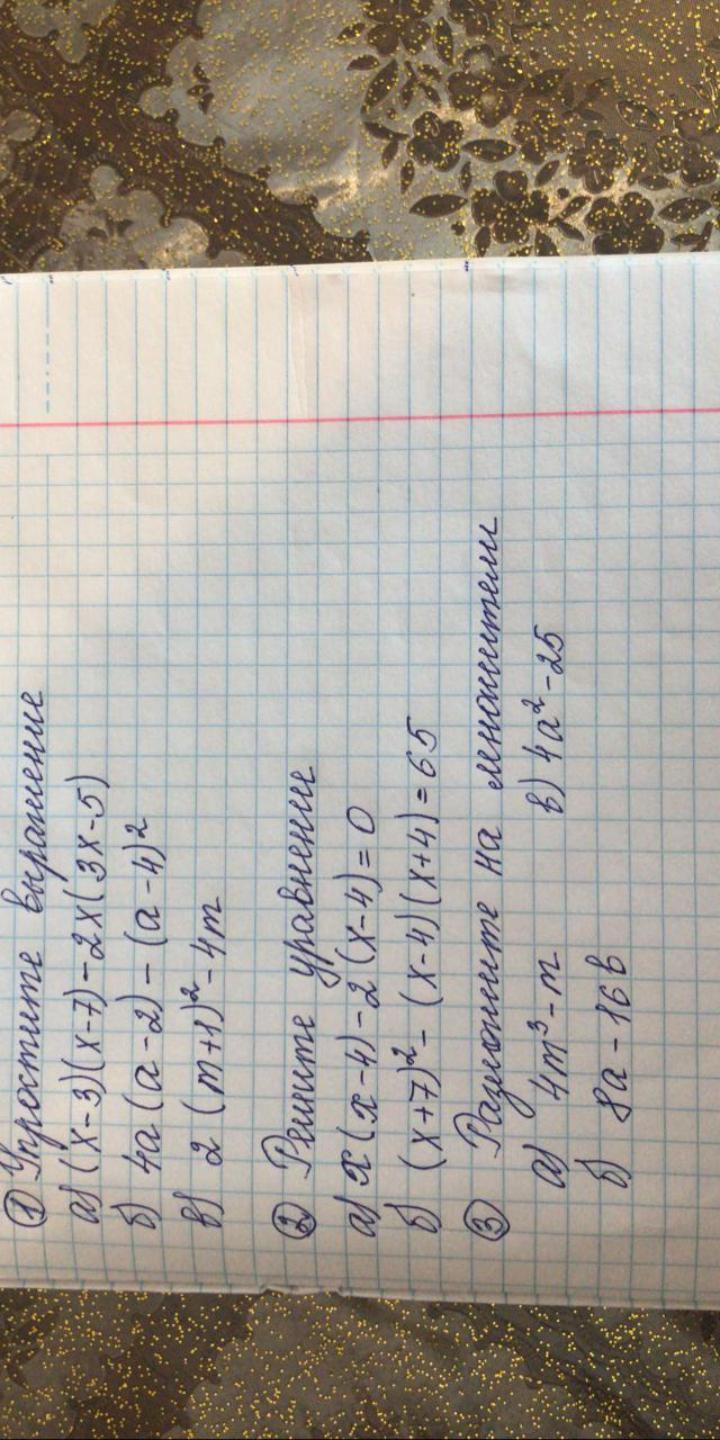 ① Упростите выражение
а) (x-3)(x-7)-2x(3x-5)
б) 4a(a-2)-(a-4)²
в) 2(m+1)²-4m
② Решите уравнение
а) x(x-4)-2(x-4)=0
б) (x+7)²-(x-4)(x+4)=65
③ Разложите на множители
а) 4m³-m в) 4a²-25
б) 8a-16b